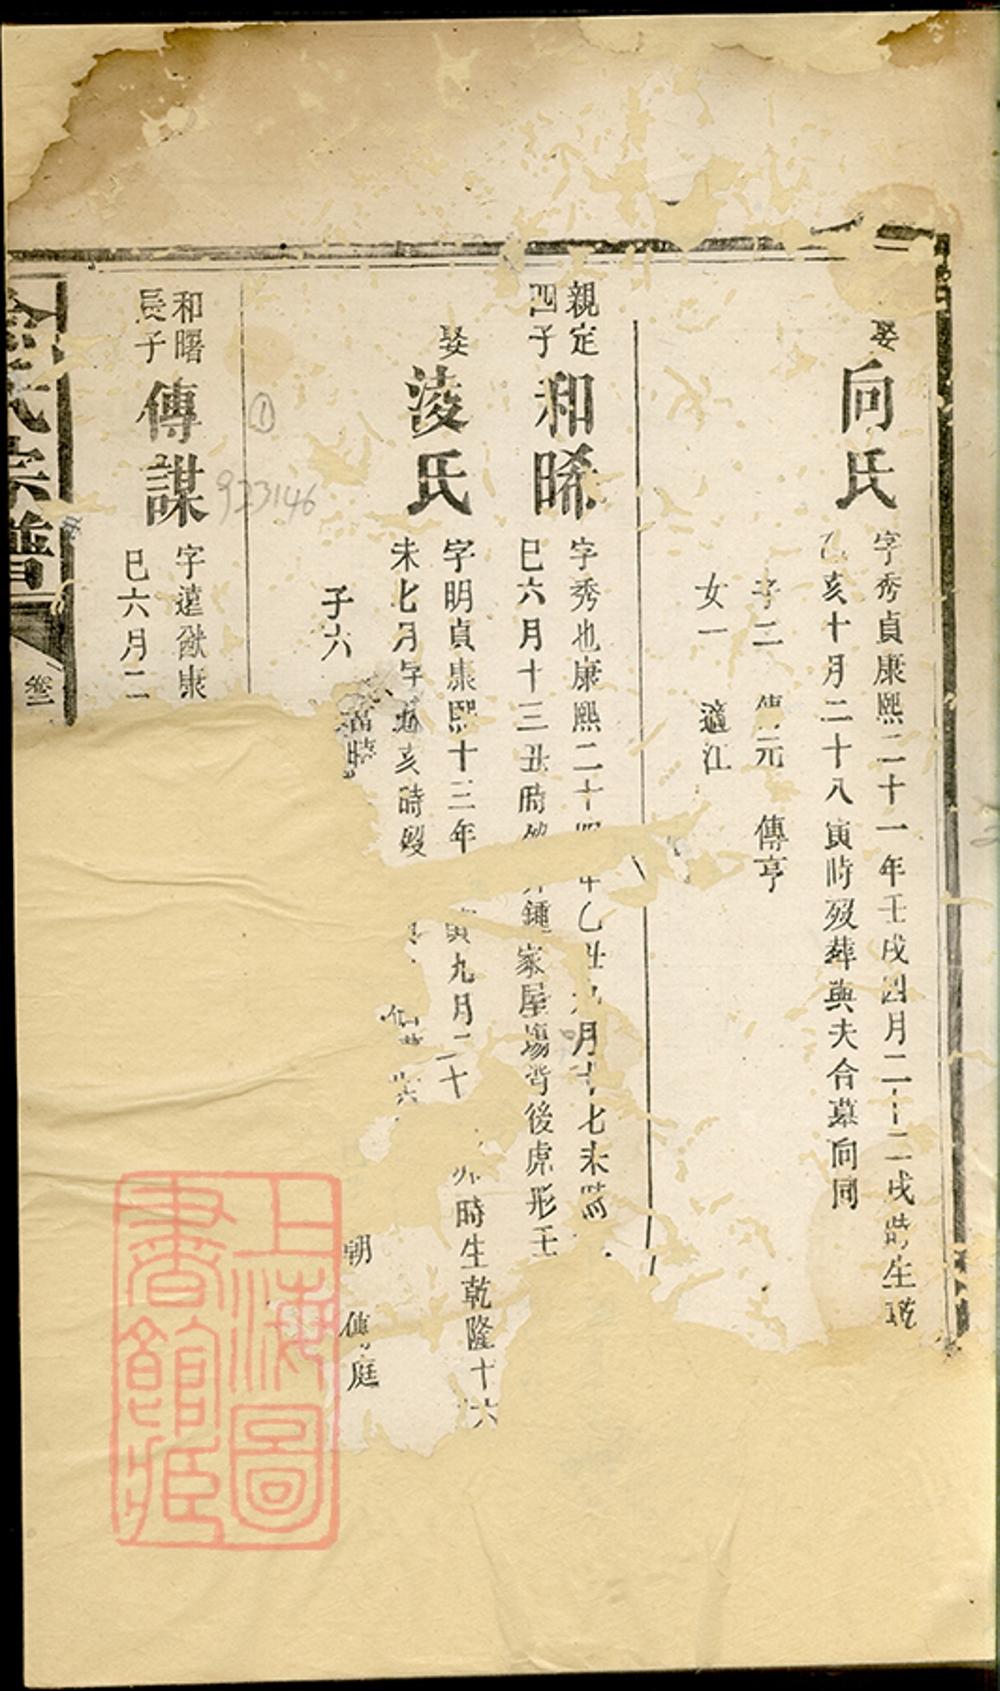 娶
向氏
字秀貞康熙二十一年壬戌四月二十二戌時生乾
亥十月二十八寅時歿葬與夫合墓向同
子二 傳元 傳亨
女一 適江
親定
四子
和晞
字秀也康熙二十四年乙丑月十七未時
巳六月十三丑時 鍾家屋塲背後虎形壬
娶
淩氏
字明貞康熙十三年 寅九月二十 卯時生乾隆十六
未七月 亥時歿
子六
朝 傳庭
和曙
長子
傳謀
字遠猷康
巳六月二
氏宗譜
卷二
923146
上海圖
書館藏